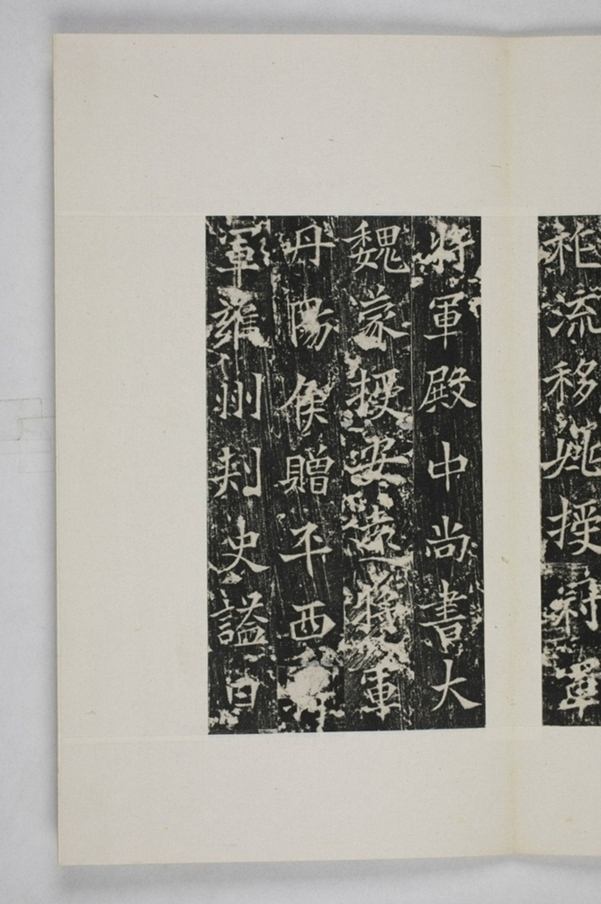 流移姚授
將軍殿中尚書大
魏蒙授安遠將軍
丹陽侯贈平西將
軍雍州刾史謚曰